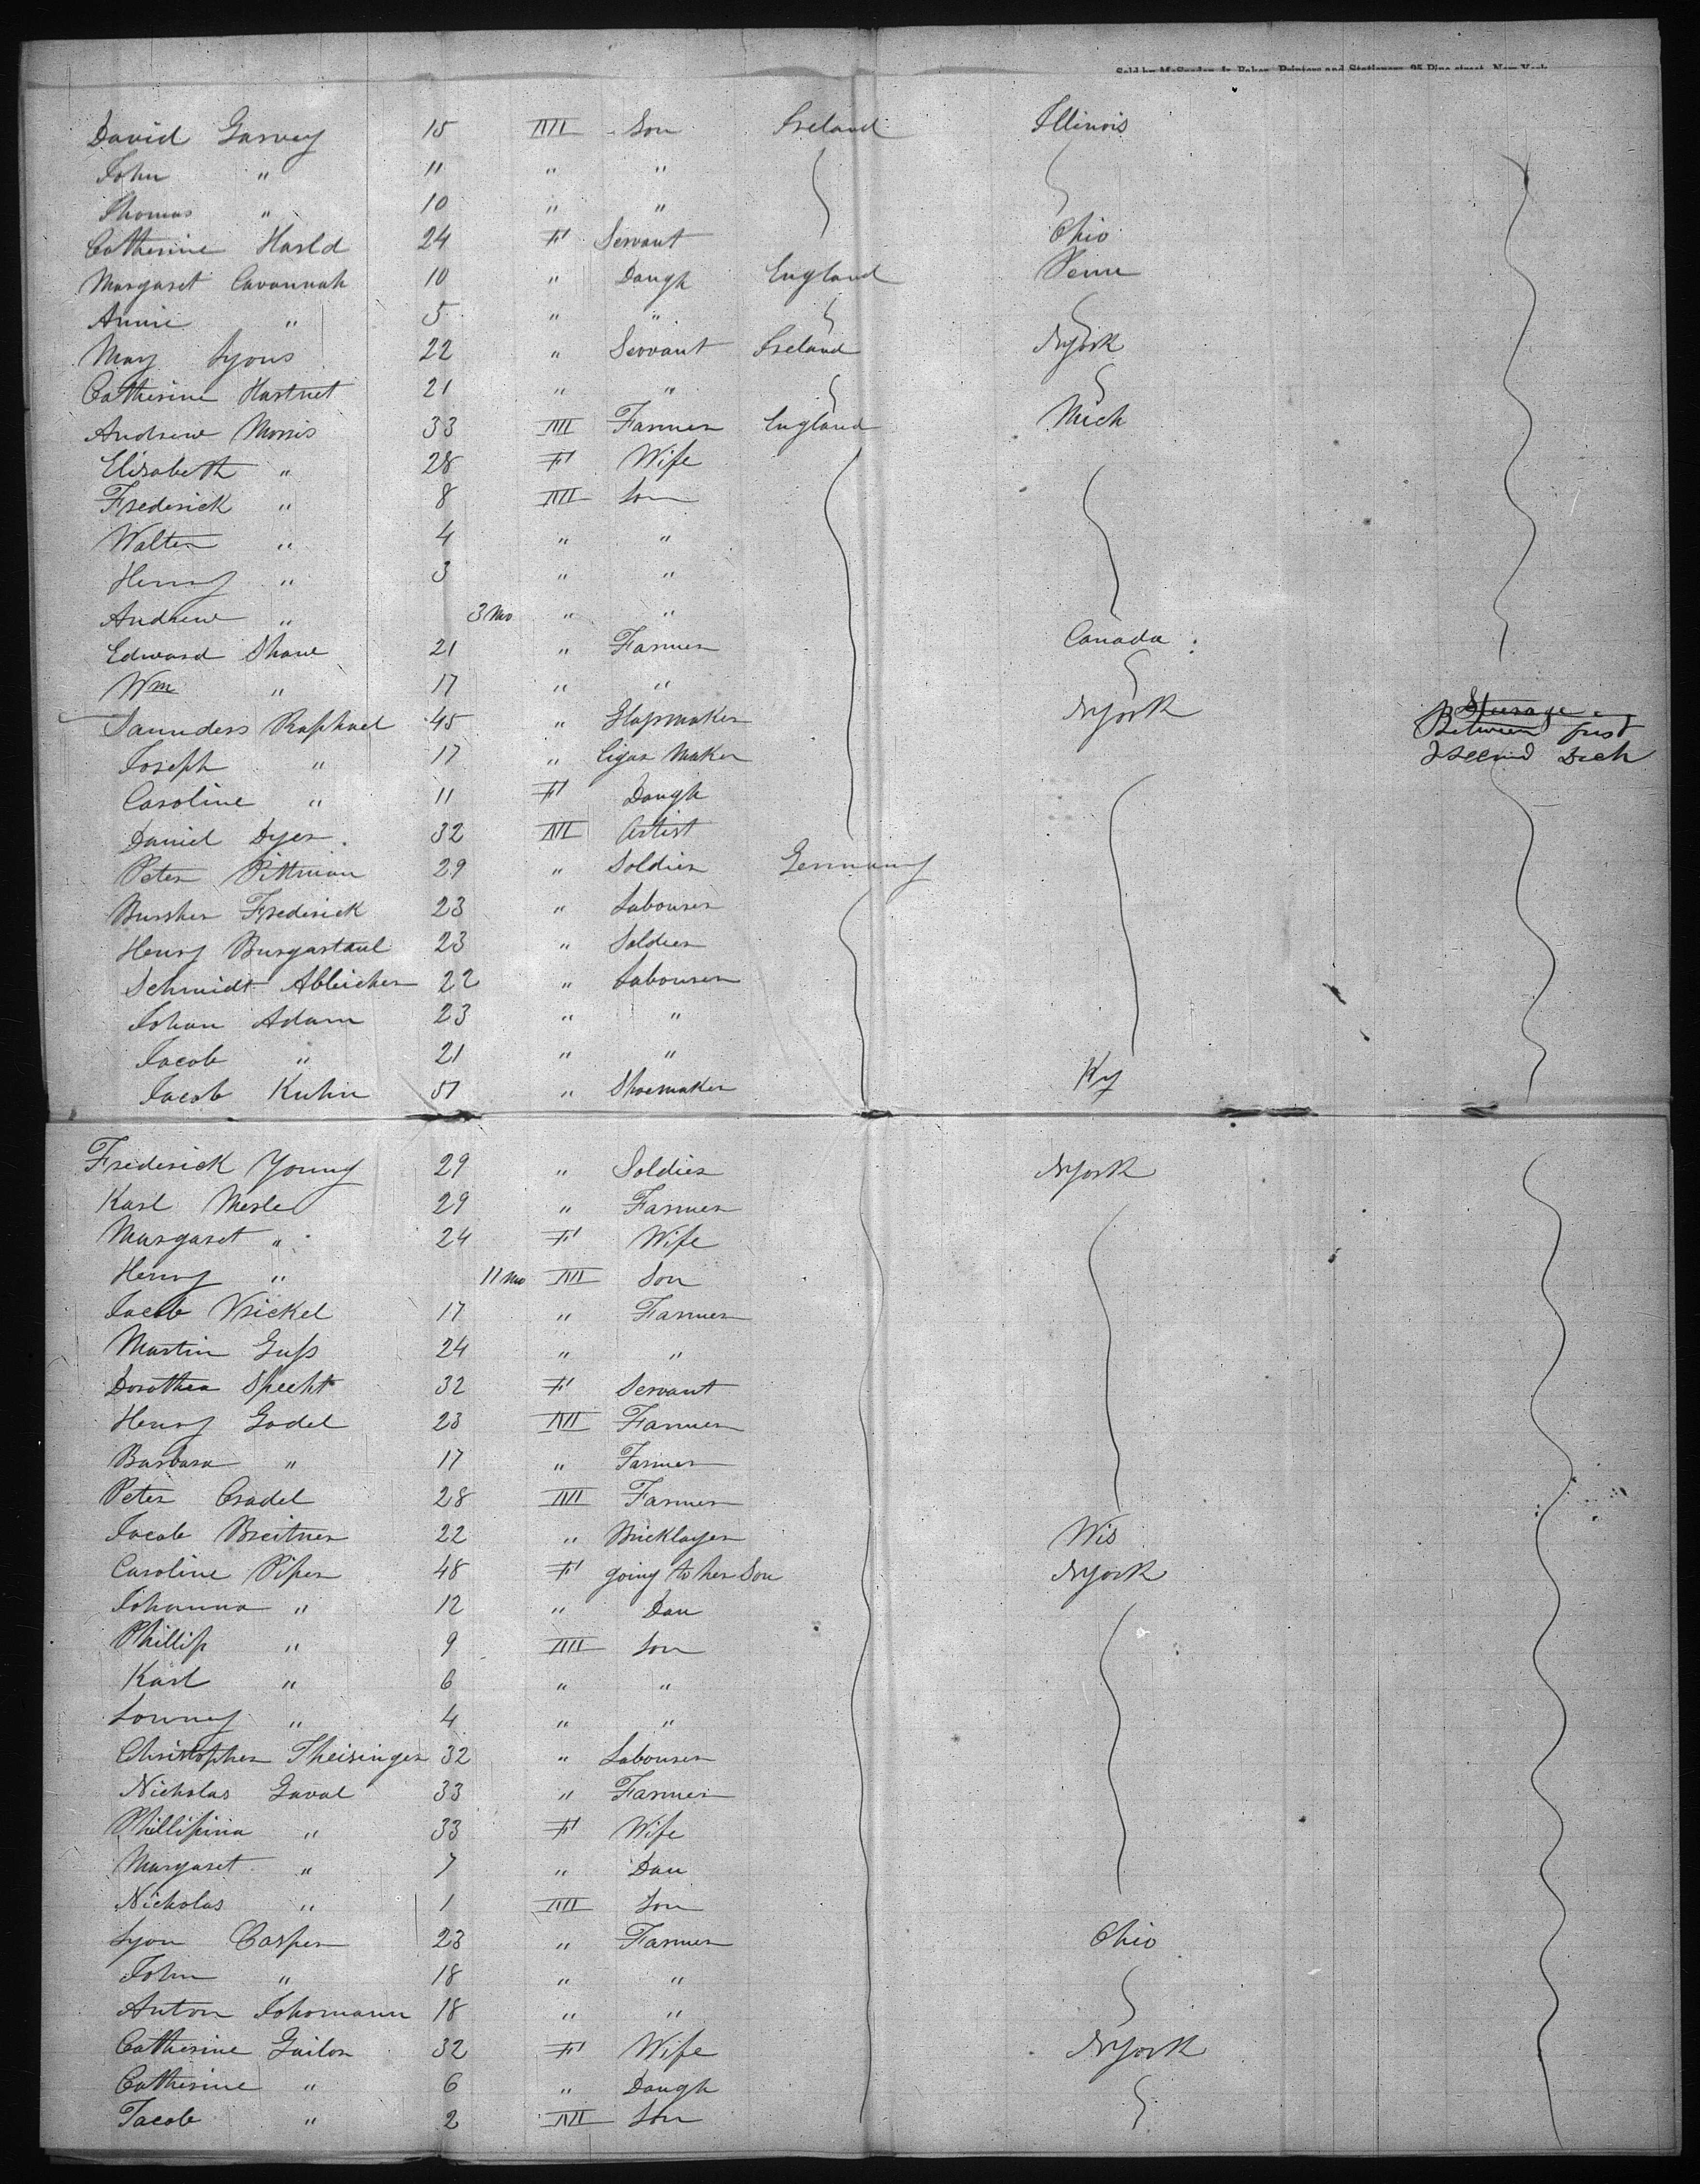 Sold by McSpedon & Baker, Printers and Stationers, 25 Pine street, New York
David Garvey 15 M Son Ireland Illinois
John " 11 " "
Thomas " 10 " "
Catherine Harld 24 F Servant Ohio
Margaret Cavannah 10 " Daugh England Penn
Annie " 5 " "
Mary Lyons 22 " Servant Ireland NYork
Catherine Hartnet 21 " "
Andrew Morris 33 M Farmer England Mich
Elizabeth " 28 F Wife
Frederick " 8 M Son
Walter " 4 " "
Henry " 3 " "
Andrew " 3 Mo " "
Edward Shaw 21 " Farmer Canada
Wm " 17 " "
Saunders Raphael 45 " Glassmaker NYork Steerage
Between first
Joseph " 17 " Cigar Maker & Second Deck
Caroline " 11 F Daugh
Daniel Dyer 32 M Artist
Peter Pittman 29 " Soldier Germany
Bursher Frederick 23 " Labourer
Henry Burgartaul 23 " Soldier
Schmidt Ableicher 22 " Labourer
Johan Adam 23 " "
Jacob " 21 " "
Jacob Kuhn 51 " Shoemaker Ky
Frederick Young 29 " Soldier NYork
Karl Merle 29 " Farmer
Margaret " 24 F Wife
Henry " 11 mo M Son
Jacob Vrickel 17 " Farmer
Martin Guss 24 " "
Dorothea Specht 32 F Servant
Henry Godel 23 M Farmer
Barbara " 17 " Farmer
Peter Cradel 28 M Farmer
Jacob Breitner 22 " Bricklayer Wis
Caroline Piper 48 F going to her Son NYork
Johanna " 12 " Dau
Phillip " 9 M Son
Karl " 6 " "
Lowney " 4 " "
Christopher Theisinger 32 " Labourer
Nicholas Gaval 33 " Farmer
Phillipina " 33 F Wife
Margaret " 7 " Dau
Nicholas " 1 M Son
Lyon Casper 23 " Farmer Ohio
John " 18 " "
Anton Johomann 18 " "
Catherine Gailor 32 F Wife NYork
Catherine " 6 " Daugh
Jacob " 2 M Son